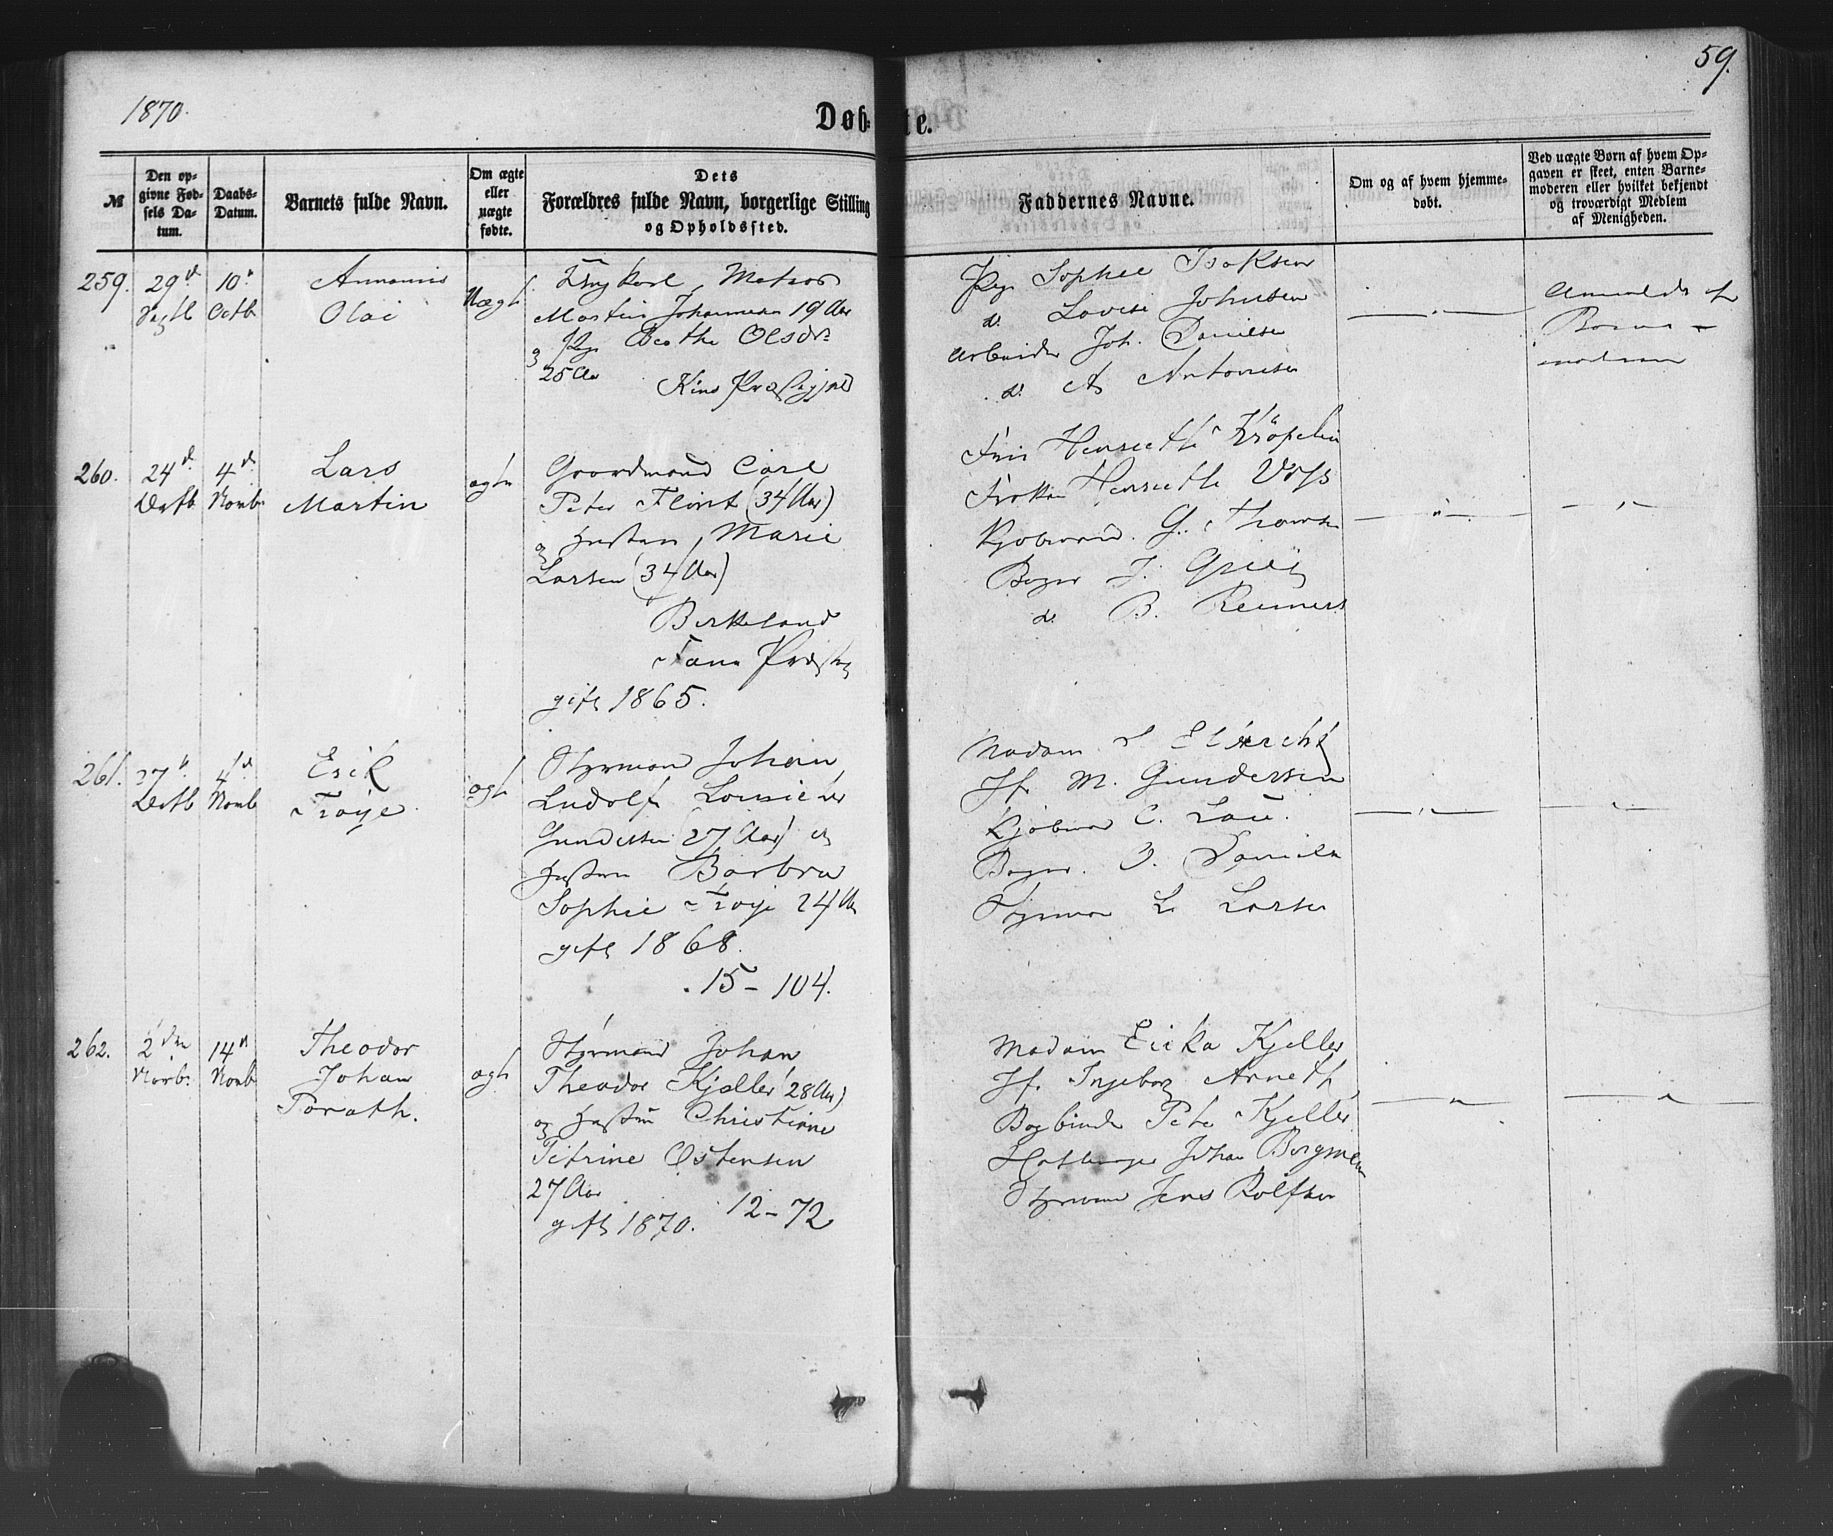 59.
1870.
Døbte.
№
Den opgivne Fødsels Datum.
Daabs-Datum.
Barnets fulde Navn.
Om ægte eller uægte fødte.
Dets Forældres fulde Navn, borgerlige Stilling og Opholdssted.
Faddernes Navne.
Om og af hvem hjemmedøbt.
Ved uægte Børn af hvem Opgaven er skeet, enten Barnemoderen eller hvilket bekjendt og troværdigt Medlem af Menigheden.
259.
29d
10.
Octb
Olai
Uægt
Ungkarl, Matros
Martin Johannesen 19 Aar
og Pige Berthe Olsdr
25 Aar
Kins Præstegjæld
Pige Sophie Isaksen
do Lovise Johnsen
Arbeider Joh. Danielse
do A Antonisen
Anmeldt af
Barne-
moderen
260.
24d
Octb
4d
Novb
Lars
Martin
ægte
Gaardmand Carl
Peter Flint (34 Aar)
og Hustru, Marie
Larsen (34 Aar)
Birkeland
Fana Præstg
gift 1865.
Henriette
Frøken Henriette Voss
Kjøbmand G.
Bager J. Grieg
do B. Reimers
261.
27
Octb
4d
Novb
Erik
Troye
ægt
Styrmand Johan
Ludolf
Gundersen (27 Aar) og
Hustru Barbra
Sophie Troye 24 Aar
gift 1868.
15 - 104.
Madam
Jf. M. Gundersen
Kjøbmand C. Lau.
Bager J. Daniels
Styrman L Larsen
262.
2den
Novb.
14d
Novb
Theodor
Johan
Porath.
ægt
Styrmand Johan
Theodor Kjeller 28 Aar)
og Hustru Christiane
Petrine Østensen
27 Aar
gift 1870. 12 - 72
Madam Ericka Kjeller
Jf. Ingeborg Arneth
Bogbinder Peter Kjeller
Johan Bergman
Styrmand Jens Rolfsen